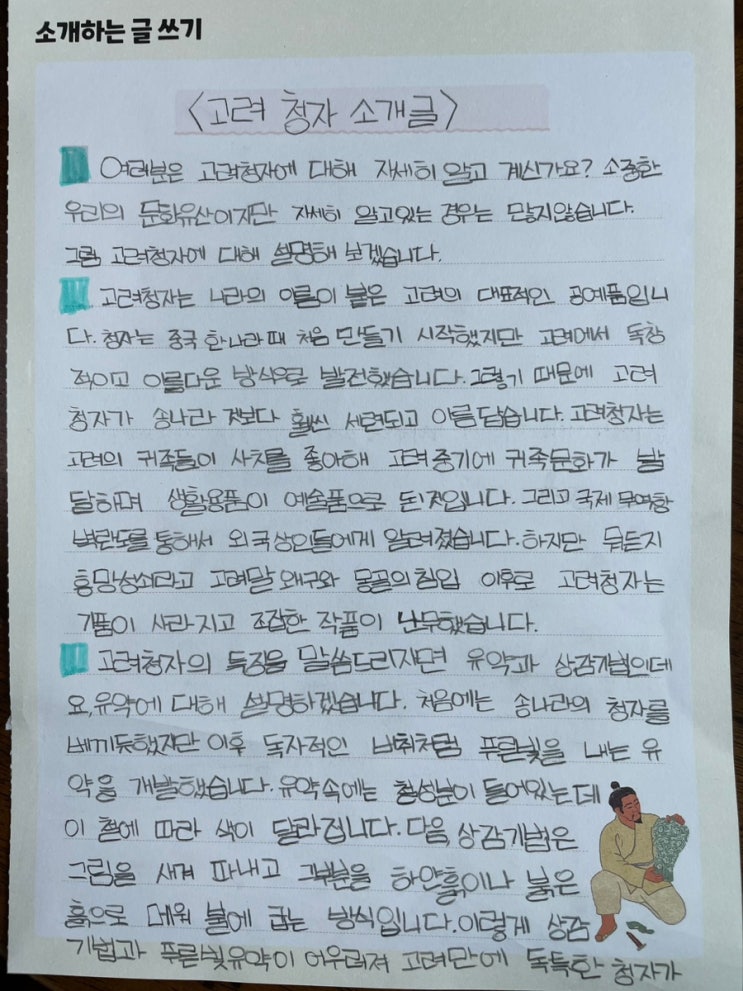 소개하는 글 쓰기
<고려 청자 소개글>
여러분은 고려청자에 대해 자세히 알고 계신가요? 소중한
우리의 문화유산이지만 자세히 알고있는 경우는 많지않습니다.
그럼 고려청자에 대해 설명해 보겠습니다.
고려청자는 나라의 이름이 붙은 고려의 대표적인 공예품입니
다. 청자는 중국 한나라 때 처음 만들기 시작했지만 고려에서 독창
적이고 아름다운 방식으로 발전했습니다. 그렇기 때문에 고려
청자가 송나라 것보다 훨씬 세련되고 아름답습니다. 고려청자는
고려의 귀족들이 사치를 좋아해 고려 중기에 귀족문화가 발
달하며 생활용품이 예술품으로 된것입니다. 그리고 국제 무역항
벽란도를 통해서 외국상인들에게 알려졌습니다. 하지만 뭐든지
흥망성쇠라고 고려말 왜구와 몽골의 침입 이후로 고려청자는
기품이 사라지고 조잡한 작품이 난무했습니다.
고려청자의 특징을 말씀드리자면 유약과 상감기법인데
요, 유약에 대해 설명하겠습니다. 처음에는 송나라의 청자를
베끼듯했지만 이후 독자적인 비취처럼 푸른빛을 내는 유
약을 개발했습니다. 유약 속에는 철성분이 들어있는데
이 철에 따라 색이 달라집니다. 다음 상감기법은
그림을 새겨 파내고 그부분을 하얀흙이나 붉은
흙으로 메워 불에 굽는 방식입니다. 이렇게 상감
기법과 푸른빛유약이 어우러져 고려만에 독특한 청자가